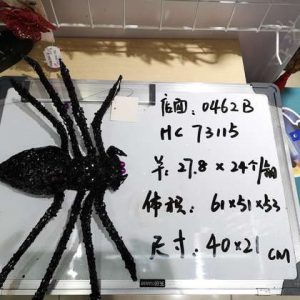 店面：0462B
HC 73115
羊：27.8×24个/箱
体积：61×51×53
尺寸：40×21 CM